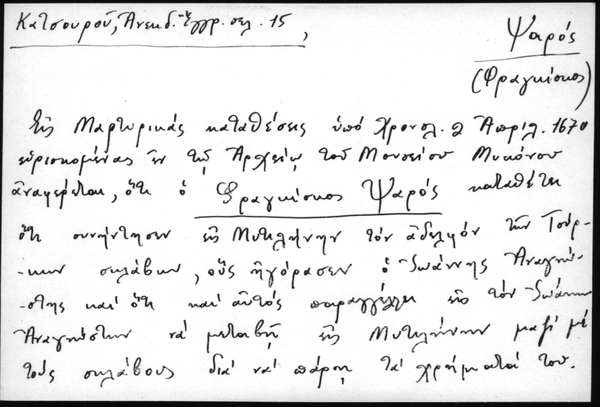 Κατσουροῦ, Ἀνεκδ. Ἔγγρ. σελ. 15,
Ψαρός
(Φραγκίσκος)
Εἰς Μαρτυρικάς καταθέσεις ὑπό χρονολ. 2 Ἀπριλ. 1670
εὑρισκομένας ἐν τῷ Ἀρχείῳ τοῦ Μουσείου Μυκόνου
ἀναφέρεται, ὅτι ὁ Φραγκίσκος Ψαρός καταθέτει
ὅτι συνήντησεν εἰς Μυτιλήνην τόν ἀδελφόν τῶν Τούρ-
-κων σκλάβων, οὓς ἠγόρασεν ὁ Ἰωάννης Ἀναγνώ-
-στης καί ὅτι καί αὐτός παραγγέλλει εἰς τόν Ἰωάννην
Ἀναγνώστην νά μεταβῇ εἰς Μυτιλήνην μαζί μέ
τούς σκλάβους διά νά πάρῃ τά χρήματά του.